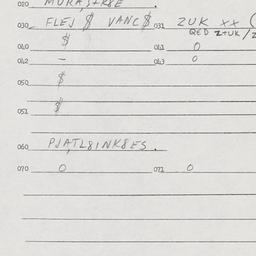 020 MURA,S+R8E .
030 FLEJ $ VANC$ 031 2UK XX (
QED 2+UK/2
040 $ 041 0
042 – 043 0
050 $
051 $
060 PJATL8INK8ES .
070 0 071 0